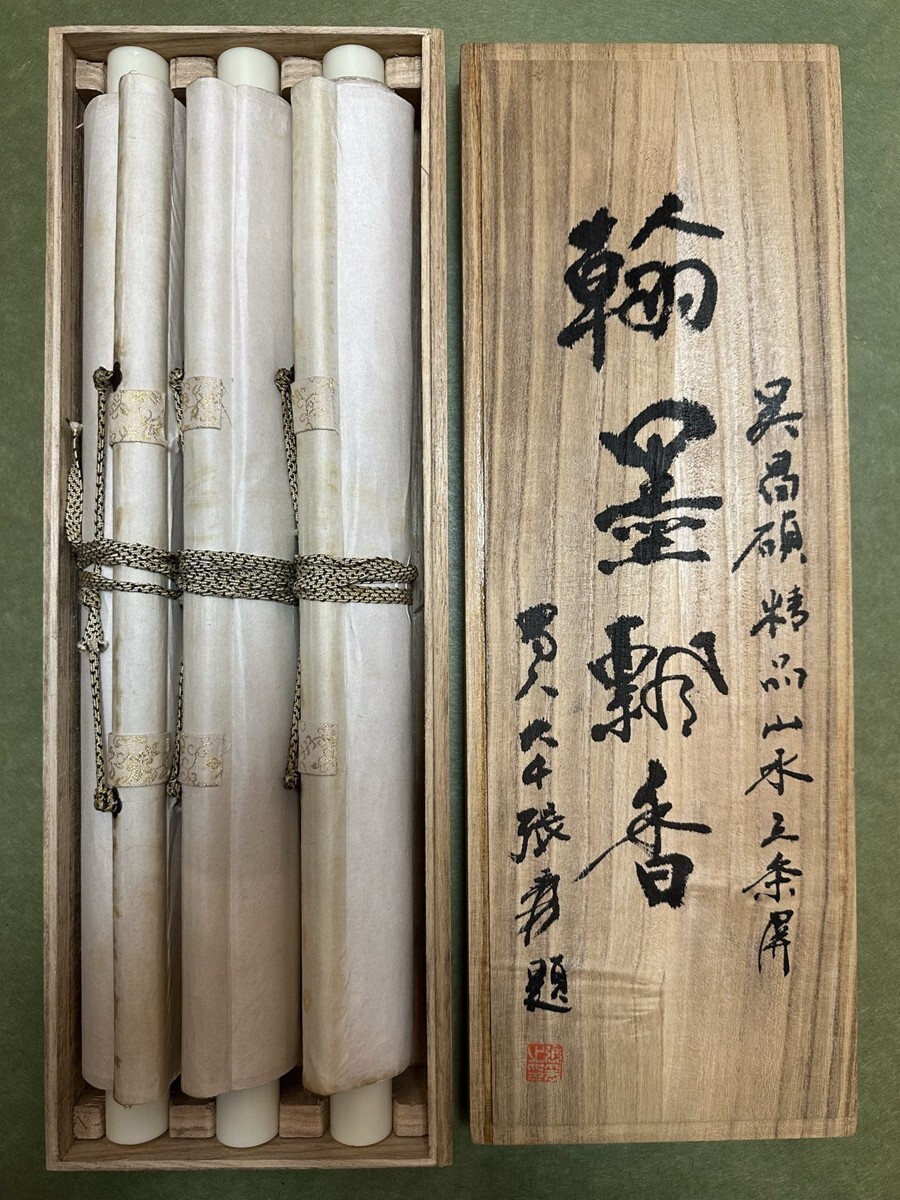 吴昌硕精品山水三条屏
翰墨飘香
蜀人大千張爰題